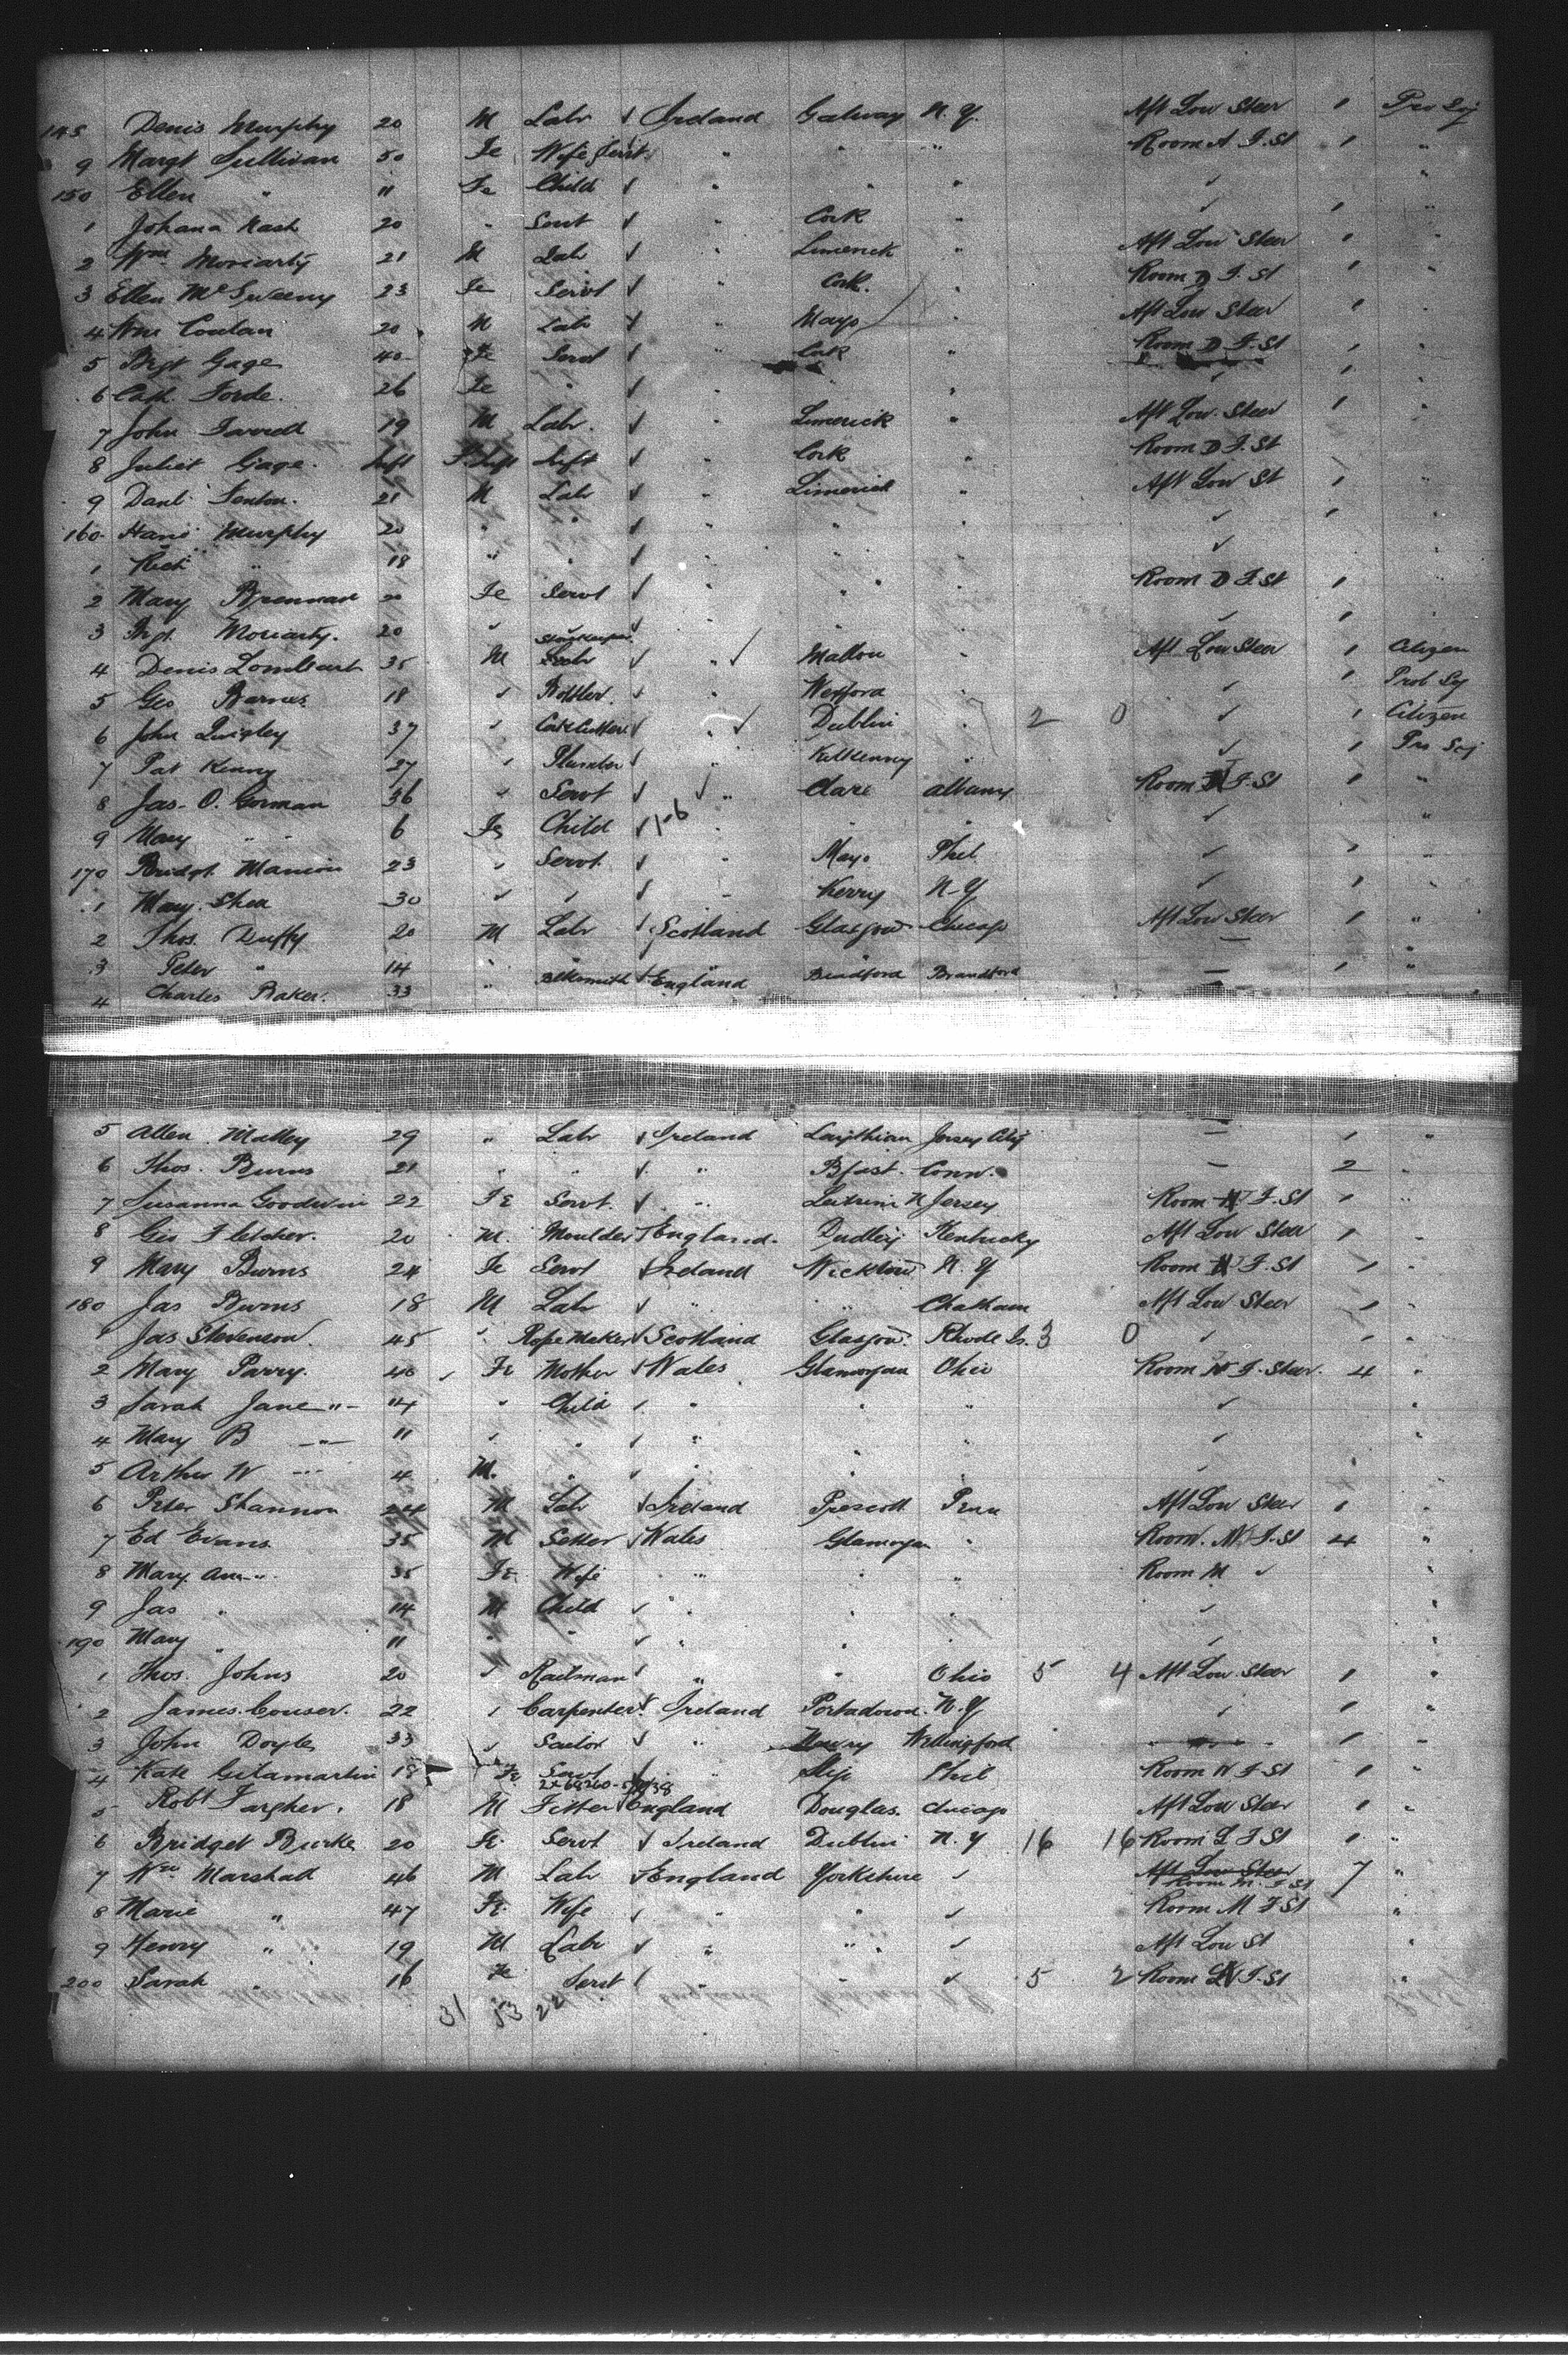 145 Denis Murphy 20 M Labr ✓ Ireland Galway N.Y. Aft Low Steer 1 Pro Soj
9 Margt Sullivan 50 Fe Wife " " " Room A F.St 1 "
150 Ellen " 11 Fe Child ✓ " " " ✓ "
1 Johana Nash 20 " Servt ✓ " Cork " ✓ 1 "
2 Wm Moriarty 21 M Labr ✓ " Limerick " Aft Low Steer 1 "
3 Ellen McSweeny 23 Fe Servt ✓ " Cork. " Room D F.St 1 "
4 Wm 20 M Labr ✓ " Mayo Aft Low Steer 1 "
5 Brgt Gage 40 Fe Servt ✓ " Cork " Room D F.St 1 "
6 Cath Forde. 26 Fe " ✓ " " ✓ 1
7 John 19 M Labr. ✓ " Limerick " Aft Low. Steer 1
8 Juliet Gage. Inft Inft ✓ " Cork " Room D F.St
9 Danl Fenton. 21 M Labr ✓ " Limerick " Aft Low St 1
160 Murphy 20 " " ✓ " " " ✓ 1
1 Rich " 18 " " ✓ " " " ✓
2 Mary Brennan Fe Servt ✓ " " " Room D F.St 1
3 Brgt. Moriarty. 20 ✓ ✓ ✓ " " " ✓ 1
4 Denis Lombart 35 M Storekeeper ✓ " ✓ Mallow Aft Low Steer 1 Citizen
5 Geo Barnes 18 ✓ Bottler. ✓ " Wexford ✓ 1 Prot Soj
6 John Quigley 37 ✓ Cork Cutter ✓ " ✓ Dublin " 2 0 ✓ 1 Citizen
7 Pat Kenny 27 ✓ Plumber ✓ " Kilkenny " ✓ 1 Pro Soj
8 Jas. O. Gorman 36 " Servt ✓ ✓ " Clare Albany Room F.St 1 "
9 Mary " " 6 Fe Child ✓ " " " ✓ "
170 Bridgt. Manion 23 ✓ Servt. ✓ " Mayo Phil ✓ 1 "
1 Mary. Shea 30 ✓ ✓ ✓ " Kerry N-Y ✓ 1
2 Thos. Duffy 20 M Labr ✓ Scotland Glasgow Chicago Aft Low Steer 1 "
3 Peter " 14 " " " " " — "
4 Charles Baker. 33 " Blksmith ✓ England Bradford Brandford — 1 "
5 Allen Malley 29 " Labr ✓ Ireland Jersey City — 1 "
6 Thos. Burns 21 " " ✓ " Bfast. Conn. — 2 "
7 Susanna Goodwin 22 Fe Servt. ✓ " Leitrim N Jersey Room F.St 1 "
8 Geo Fletcher. 20 M. Moulder ✓ England. Dudley Kentucky Aft Low Steer 1 "
9 Mary Burns 24 Fe Servt ✓ Ireland Wicklow N.Y Room F.St 1 "
180 Jas Burns 18 M Labr ✓ " " Chatham Aft Low Steer 1 "
1 Jas Stevenson 45 " Rope Maker ✓ Scotland Glasgow. Rhode Is. 3 0 ✓ 1 "
2 Mary Parry. 40 Fe Mother ✓ Wales Glamorgan Ohio Room F. Steer. 4 "
3 Sarah Jane " 14 " Child ✓ " " " ✓ "
4 Mary B " 11 ✓ " ✓ " " " ✓ "
5 Arthur W " 4 M. " ✓ " " " ✓ "
6 Peter Shannon 24 M Labr ✓ Ireland Prescott Penn Aft Low Steer 1 "
7 Ed Evans 35 M Setter ✓ Wales Glamorgan " Room. F.St 4 "
8 Mary. Ann " 35 Fe Wife " " " Room M ✓ "
9 Jas " 14 M Child ✓ " " " ✓ "
190 Mary " 11 " " ✓ " " ✓ "
1 Thos. Johns 20 ✓ Railman ✓ " " Ohio 5 4 Aft Low. Steer 1 "
2 James. Couser. 22 ✓ Carpenter ✓ Ireland Portadown. N.Y ✓ 1 "
3 John Doyle 33 ✓ Sailor ✓ " Newry Wellingford 1 "
4 Kate Gilamartin 18 Fe Servt ✓ " Sligo Phil Room N F.St 1 "
5 Robt Fargher. 18 M Fitter ✓ England Douglas. Chicago Aft Low Steer 1 "
6 Bridget Burke 20 Fe Servt ✓ Ireland Dublin N.Y 16 16 Room L F St 1 "
7 Wm Marshall 46 M Labr ✓ England Yorkshire ✓ Aft Low Steer Room M. F St 7 "
8 Marie " 47 Fe Wife ✓ " " ✓ Room M F St "
9 Henry " 19 M Labr ✓ " " ✓ Aft Low St "
200 Sarah " 16 Fe Servt ✓ " ✓ 5 2 Room F.St "
31 53 22